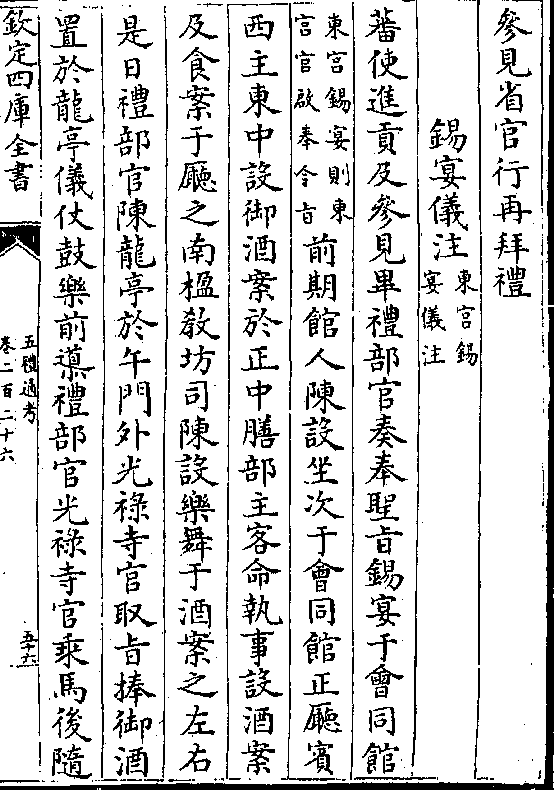 參見省官行再拜禮
錫宴儀注東宮錫
宴儀注
蕃使進貢及參見畢禮部官奏奉聖旨錫宴于會同館
東宮錫宴則東
宮官啟奉令旨前期館人陳設坐次于會同館正廳賓
西主東中設御酒案於正中膳部主客命執事設酒案
及食案于廳之南楹教坊司陳設樂舞于酒案之左右
是日禮部官陳龍亭於午門外光祿寺官取旨捧御酒
置於龍亭儀仗鼓樂前導禮部官光祿寺官乘馬後隨
欽定四庫全書
五禮通考
卷二百二十六
五十六